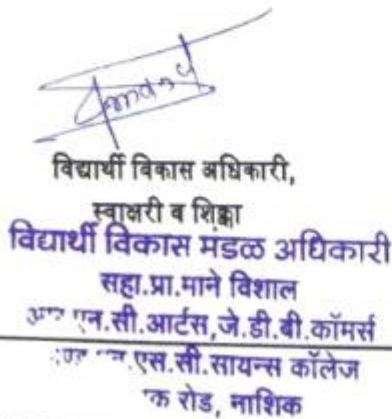 विद्यार्थी विकास अधिकारी,
स्वाक्षरी व शिक्का
विद्यार्थी विकास मंडळ अधिकारी
सहा.प्रा.माने विशाल
एन.सी.आर्टस,जे.डी.बी.कॉमर्स
एस.सी.सायन्स कॉलेज
रोड, नाशिक